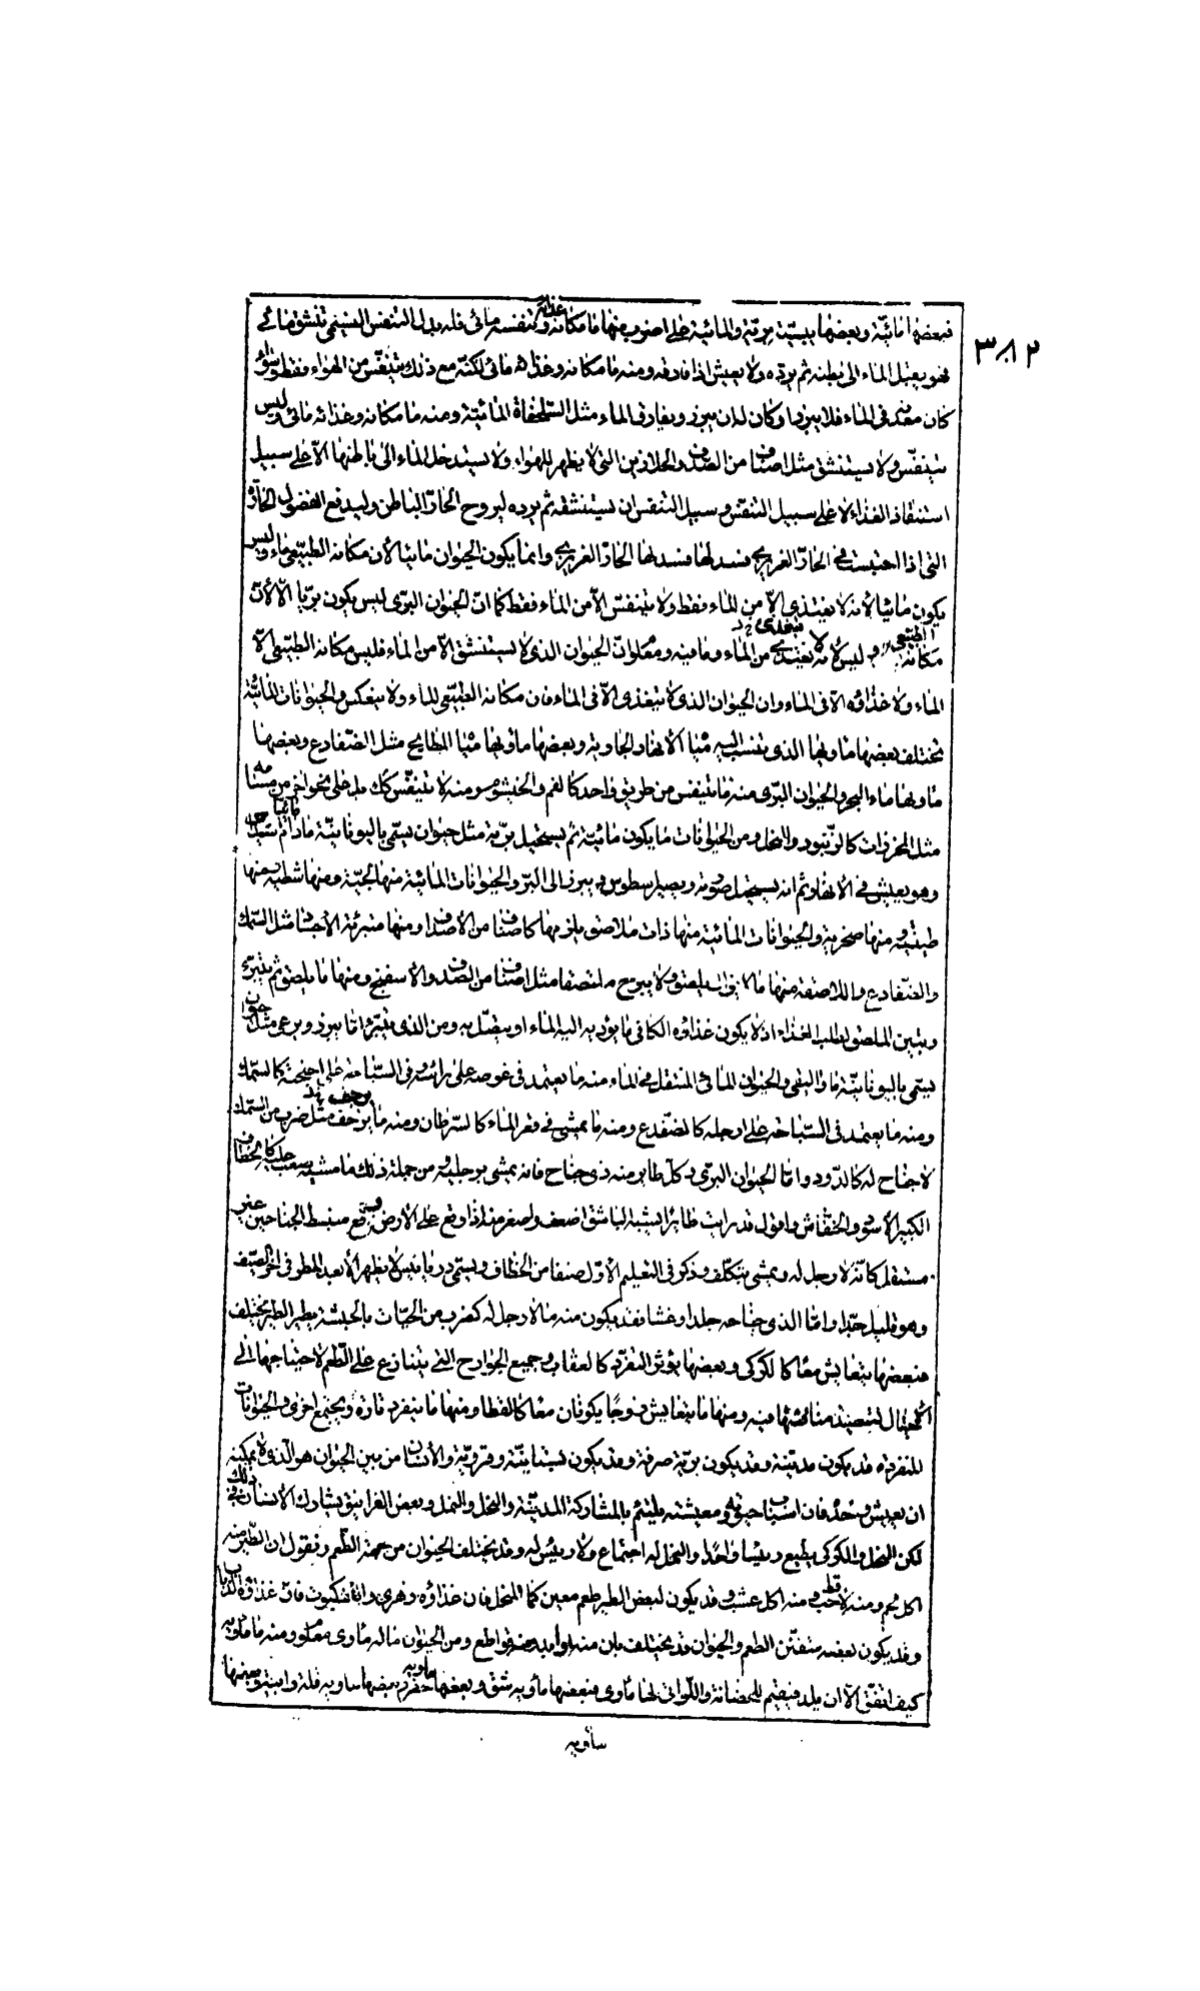 ٣٨٢
فبعضها مائيّة وبعضها يبسيّة بريّة والمائية على اصنوب منها ما مكانه وغذاؤه وتنفسه مائى فله بدل التنفس النسيمى تنشق مائى
فهو يقبل الماء الى بطنه ثم يرده ولا يعيش اذا فارقه ومنه ما مكانه وغذاه مائى لكنّه مع ذلك يتنفّس من الهواء فقط وسواء
كان معدنه فى الماء فلا يبرزه او كان له ان يبرز ويفارق الماء مثل السلحفاة المائيّة ومنه ما مكانه وغذائه مائى وليس
يتنفّس ولا يستنشق مثل اصناف من الصدف والحلازين التى لا يظهر للهواء ولا يستدخل الماء الى باطنها الّا على سبيل
استنقاذ الغذاء لا على سبيل التنفّس وسبيل التنفّس ان يستنشقه ثم يرده ليروح الحارّ الباطن وليدفع الفضول الحارّة
التى اذا احتبست فى الحارّ الغريزى فسد لها فسد لها الحارّ الغريزى وانما يكون الحيوان مائيا لأن مكانه الطبيعى ماء وليس
يكون مائيا لأنه لا يغتذى الّا من الماء فقط ولا يتنفّس الّا من الماء فقط كما انّ الحيوان البرّى ليس يكون بريّا الّا لأنّ
مكانه الطبيعى بر وليس لأنه لا يغتذى من الماء وما فيه ومعلوم انّ الحيوان الذى لا يستنشق الّا من الماء فليس مكانه الطبيعى الّا
الماء ولا غذاؤه الّا فى الماء وان الحيوان الذى لا يتغذى الّا فى الماء فان مكانه الطبيعى الماء ولا ينعكس والحيوانات المائيّة
تختلف بعضها مأواها الذى تنسب اليه مياه الأنهار الجارية وبعضها مأواها مياه البطايح مثل الضفادع وبعضها
مأواها ماء البحر والحيوان البرّى منه ما يتنفس من طريق واحد كالفم والخيشوم ومنه لا يتنفّس كك بل على نحو اخر من مسامه
مثل المحززات كالزنبور والنحل ومن الحيوانات ما يكون مائية ثم يستحيل بريّة مثل حيوان يسمّى باليونانيّة ما دام
وهو يعيش فى الأنهار ثم انه يستحيل صورته ويصير سطوس ويبرز الى البرّ والحيوانات المائيّة منها لجيّة ومنها شطيه ومنها
طينيّة ومنها صخرية والحيوانات المائية منها ذات ملاصق يلزمها كاصناف من الأصداف ومنها متبرئة الأجسام مثل السمك
والضفادع واللاصقة منها ما لا يزال يلصق ولا يبرح ملتصقا مثل اصناف من الصدف والأسفنج ومنها ما يلصق ثم يتبرّء
الملصق لطلب الغذاء اذ لا يكون غذاؤه الكافى ما يؤديه اليه الماء او يتصّل به ومن الذى يتبرّء ما يبرز ويرعى مثل حيوان
يسمى باليونانيّة والحيوان المائى المنتقل فى الماء منه ما يعتمد فى غوصه على رأسه وفى السباحة على اجنحة كالسمك
ومنه ما يعتمد فى السّباحة على ارجله كالضفدع ومنه ما يمشى فى قعر الماء كالسّرطان ومنه ما يزحف مثل ضرب من السمك
لا جناح له كالدّود وامّا الحيوان البرّى وكلّ طاير منه ذى جناح فانه يمشى برجليه ومن جملة ذلك ما مشيه يصعب عليه كالخطاف
الكبير الأسود والخفّاش واقول قد رايت طائرا يشبه الباشق اضعف واصغر منه اذا وقع على الأرض وقع منبسط الجناحين غير
مستقل كانّه لا رجل له ويمشى بتكلّف وذكر فى التعليم الأوّل صنفا من الخطاف ويسمى لا يظهر الّا بعد المطر فى اخر الصّيف
وهو قليل جدّا وامّا الذى جناحه جلدا وغشا فقد يكون منه ما لا رجل له كضرب من الحيّات بالحبشة يطير والطير يختلف
فبعضها يتعايش معا كالكركى وبعضها يؤثر التفرّد كالعقاب وجميع الجوارح التى يتنازع على الطعم لاحتياجها الى
الاحتيال لتصيد ومنافستها فيه ومنها ما يتعايش زوجا يكونان معا كالقطا ومنها ما ينفرد تارة ويجتمع اخرى والحيوانات
المنفردة قد يكون مدنيّة وقد يكون بريّة صرفة وقد يكون بستانيّة وقرويّة والانسان من بين الحيوان هو الّذى لا يمكنه
ان يعيش وحده فان اسباب حيوته ومعيشته يلتئم بالمشاركة المدنيّة والنحل والنمل وبعض الغرانيق يشارك الانسان فى ذلك
لكن النحل والكركى يطيع رئيسا واحدا والنمل له اجتماع ولا رئيس له وقد يختلف الحيوان من جهة الطّعم ونقول ان الطّير منه
اكل لحم ومنه لاقط حب ومنه اكل عشب وقد يكون لبعض الطير طعم معين كما النحل فان غذاؤه زهرى والعنكبوت فان غذاؤه الذباب
وقد يكون بعضه متفنّن الطعم والحيوان قد يختلف بان منه اوابد ومنه قواطع ومن الحيوان ما له مأوى معلوم ومنه ما مأويه
كيف اتفق الّا ان يلد فيقيم للحضانة واللّواتى لها مأوى فبعضها مأويه شق وبعضها مأويه حفر وبعضها مأويه قلة رابية وبعضها
مأويه